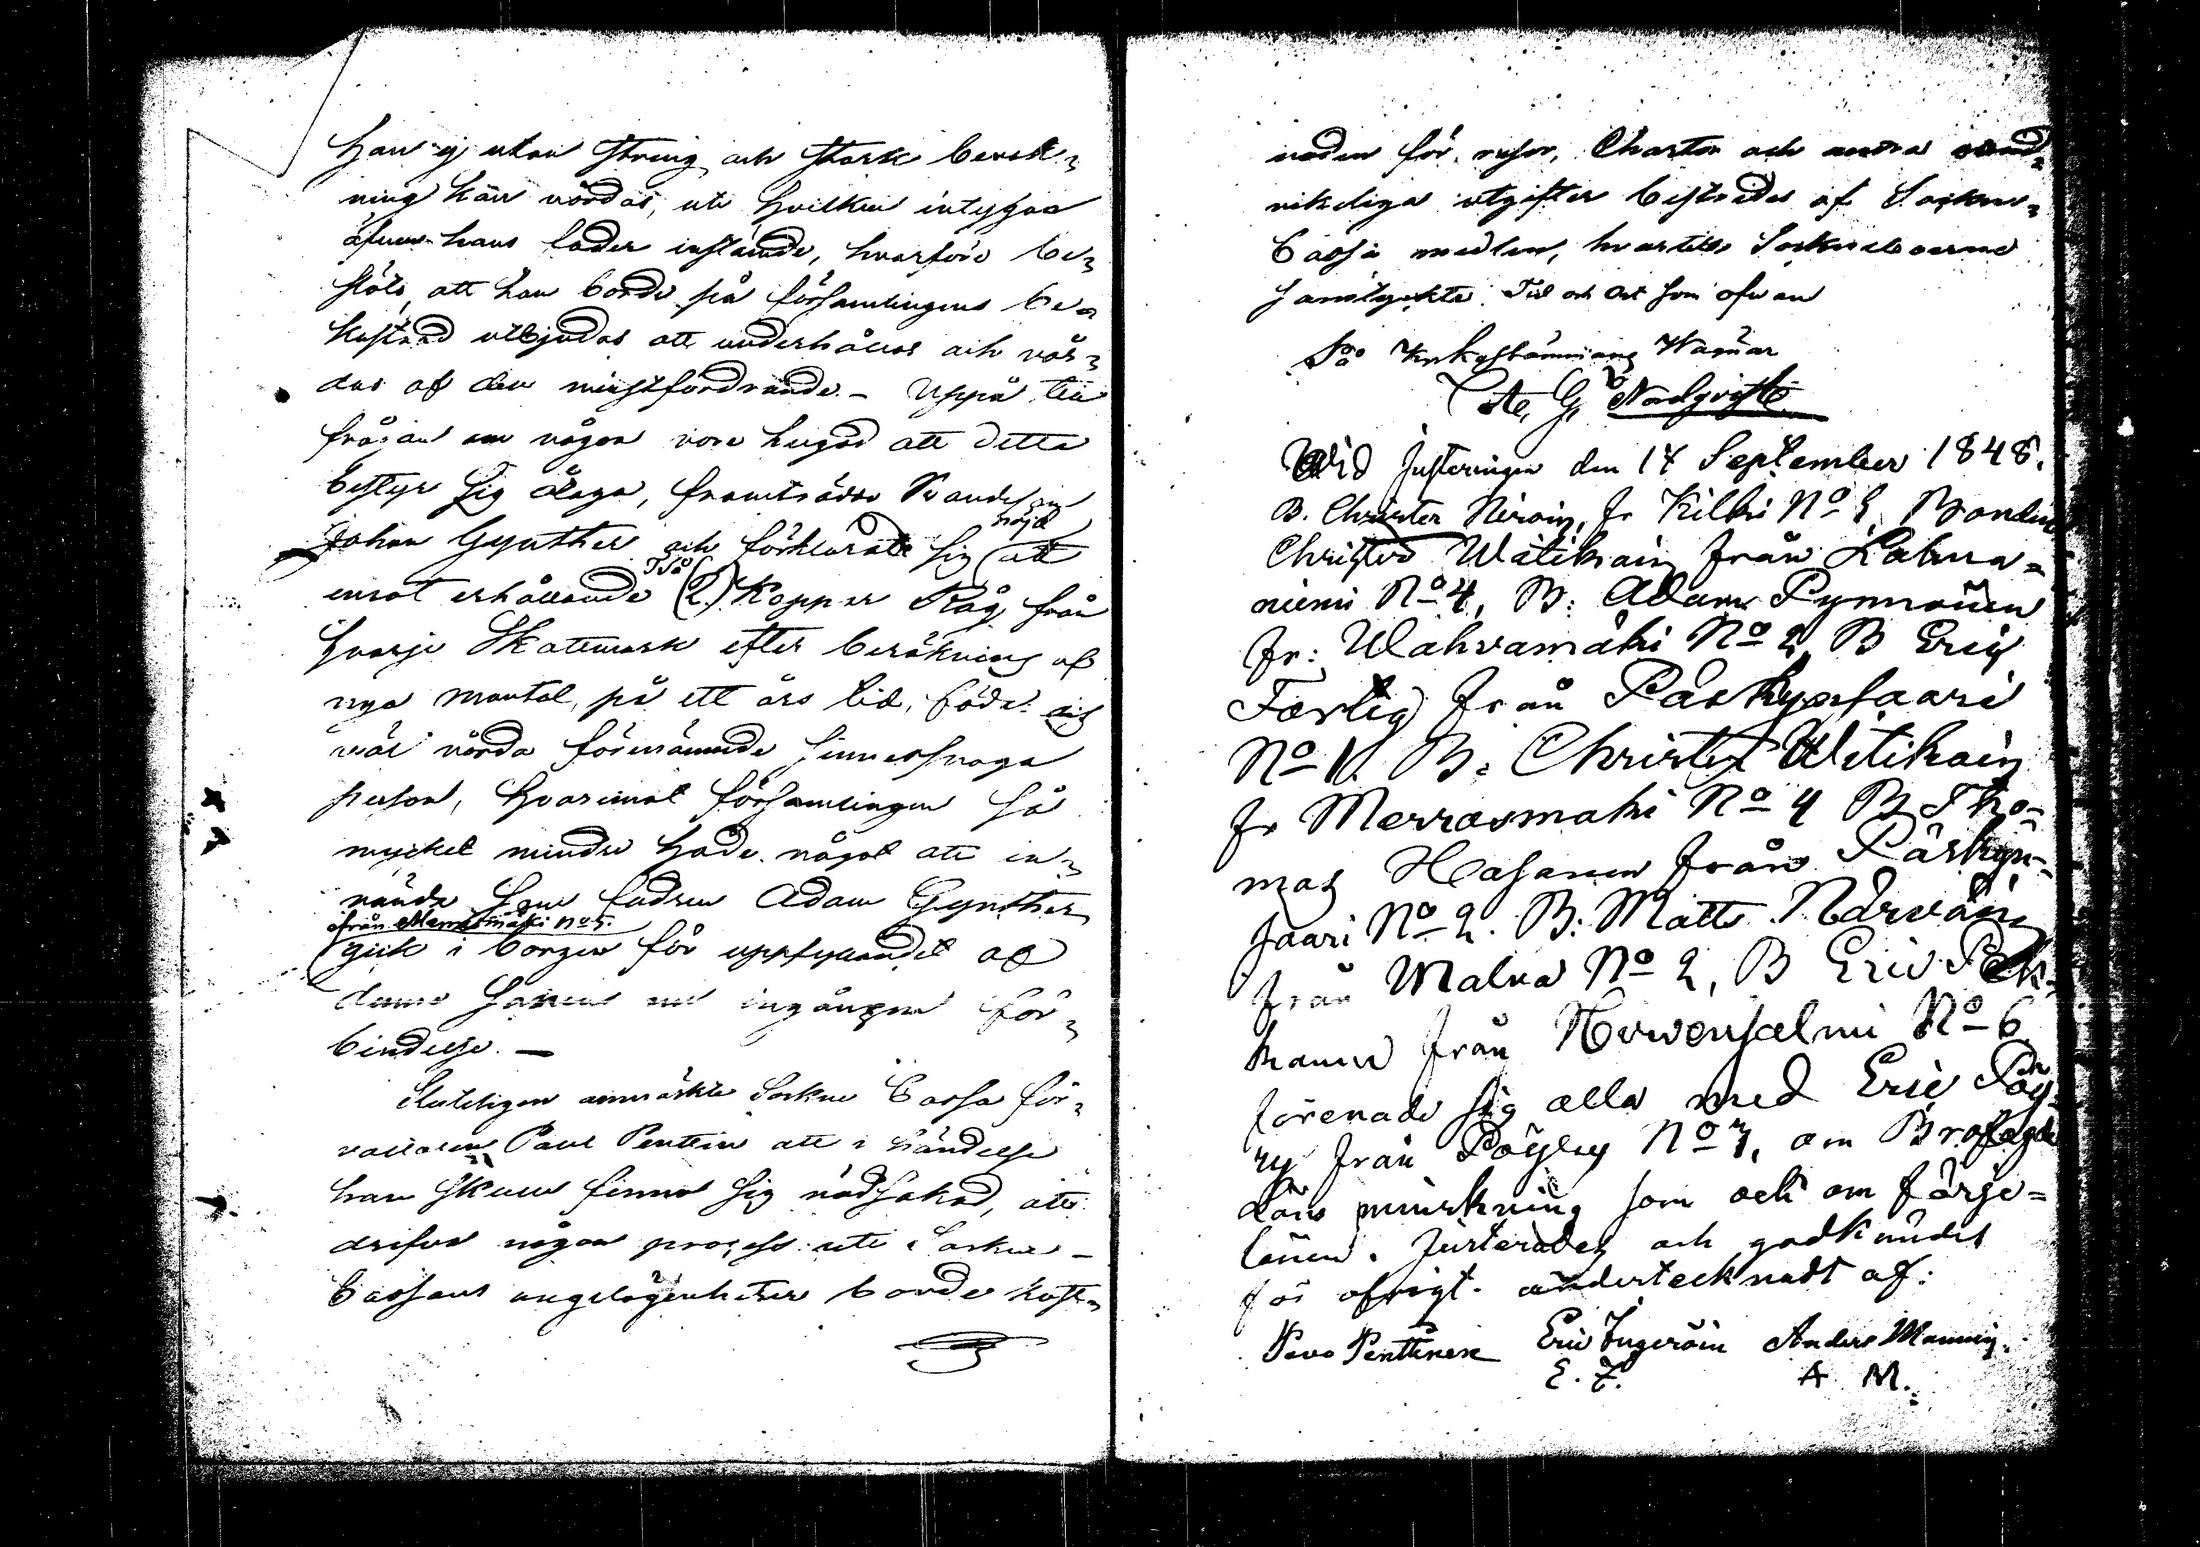 han ej utan sträng och stark bevak-
ning kan vårdas, uti hvilken intygan
äfven hans fader instämde, hvarföre be-
slöts, att han borde på församlingens be-
kostnad utbjudas att underhållas och vår-
das af den minstfordrande. - Uppå till
frågan om någon vore hugad att detta
bestyr sig åtaga, framträdde Svenske
Johan Gynther och förklarade sig nöjd att
emot erhållande Två (2) Kappar Råg från
hvarje Skattemark efter beräkning af
nya mantal, på ett års tid, föda och
väl vårda förenämnde sinnessvaga
person, hvaremot församlingen så
mycket mindre hade något att in-
vända som fadren Adam Gynther
från No 5.
gick i borgen för uppfyllandet af
denne Sonens nu ingångna för-
bindelse. -
Slutligen anmärkte Sockne Cassa för-
valtaren Paul Pentin att i händelse
han skulle finna sig nödsakad, att
drifva någon process uti Sockne-
Cassans angelägenheter borde kost-
naden för resor, Charta och andra nöd-
vändiga utgifter bestridas af Sockne-
Cassa medlen, hvartill Sockneboerne
samtyckte. Tid och Ort som ofvan
På Kyrkostämmans Wägnar
G. Nordqvist
Wid Justeringen den 17 September 1848.
B. Christer Hirvoin, fr Kilkki No Bonden
Christer Witikain från Lahna-
niemi No 4, B: Adam Pynnöinen
fr: Wahvamäki No 2 B Eric
Tortig från Päskynsaari
No 1. B: Christer Witikain
fr Merrasmäki No 4 B Tho-
mas Hasanen från Päskyn-
saari No 2. B: Matts Närväin
från Malva No 2, B Eric Pek-
kanen från Hirvensalmi No 6
förenade sig alla med Eric Pöy-
ry från Pöyry No 7, om Brofogde
löns minskning som och om färje-
lönen. Justerades och godkändes
för öfrigt. undertecknadt af:
Pavo Penttinen Eric Ingeröin Anders Mannin
E. I. A M.